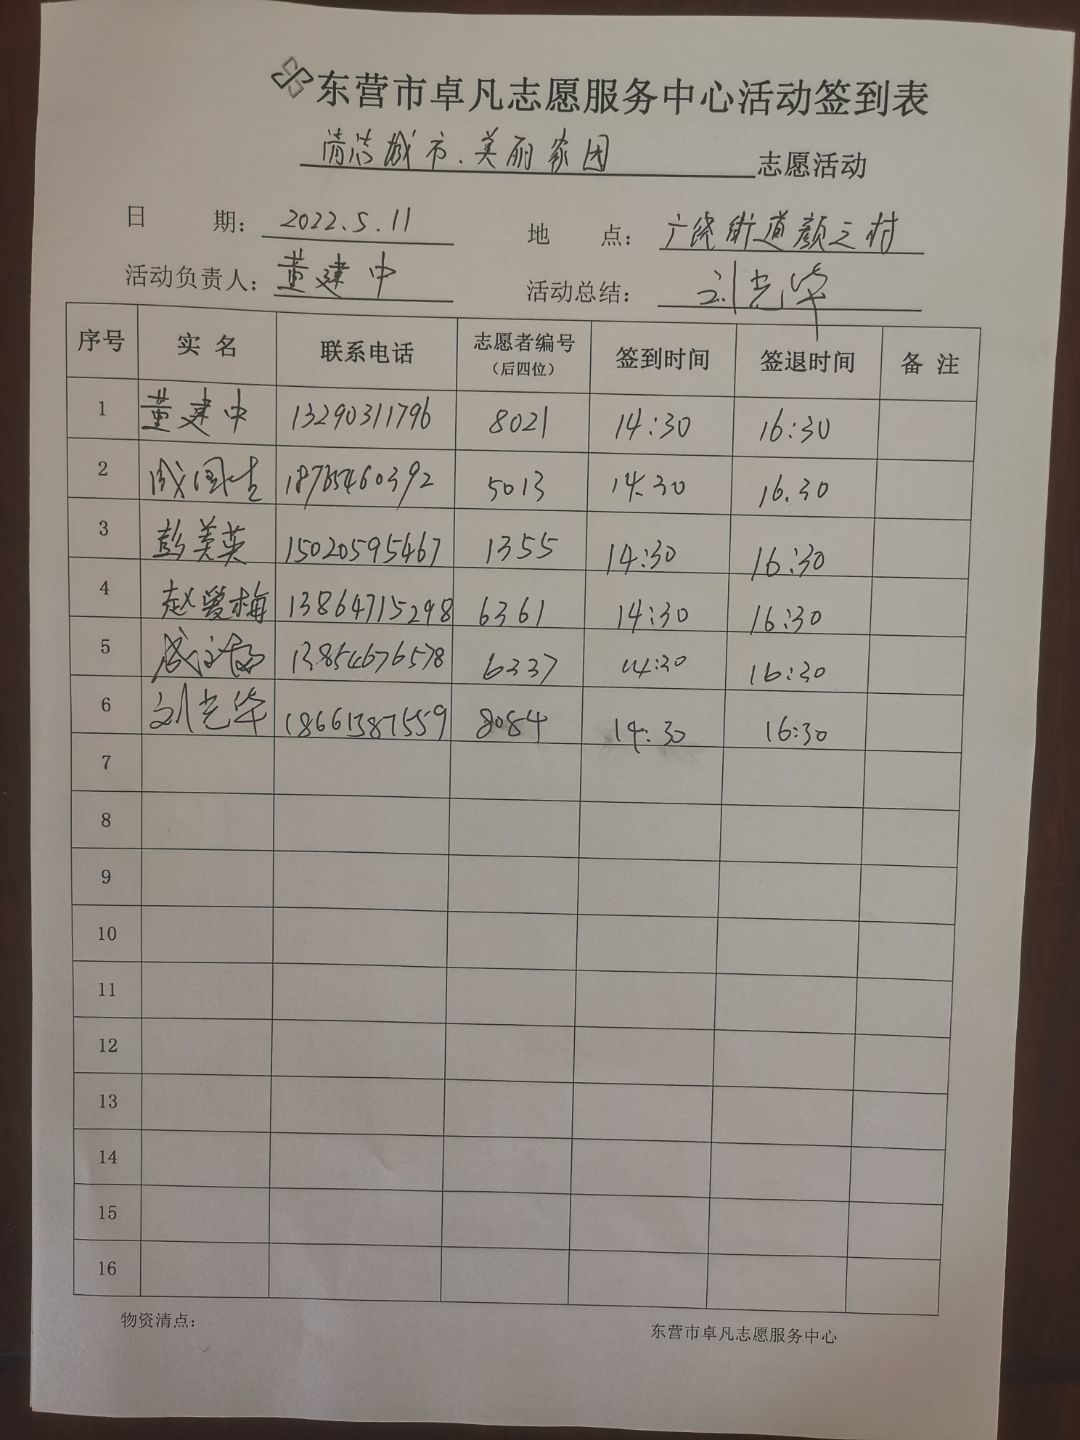 东营市卓凡志愿服务中心活动签到表
清洁城市、美丽家园 志愿活动
日 期: 2022.5.11 地 点: 广饶街道颜之村
活动负责人: 董建中 活动总结: 刘光华
序号 实名 联系电话 志愿者编号(后四位) 签到时间 签退时间 备注
1 董建中 13290311796 8021 14:30 16:30
2 成国生 18765460392 5013 14.30 16.30
3 彭美英 15020595467 1355 14:30 16:30
4 赵爱梅 13864715298 6361 14:30 16:30
5 13854676578 6337 14:30 16:30
6 刘光华 18661387559 8084 14:30 16:30
7
8
9
10
11
12
13
14
15
16
物资清点: 东营市卓凡志愿服务中心